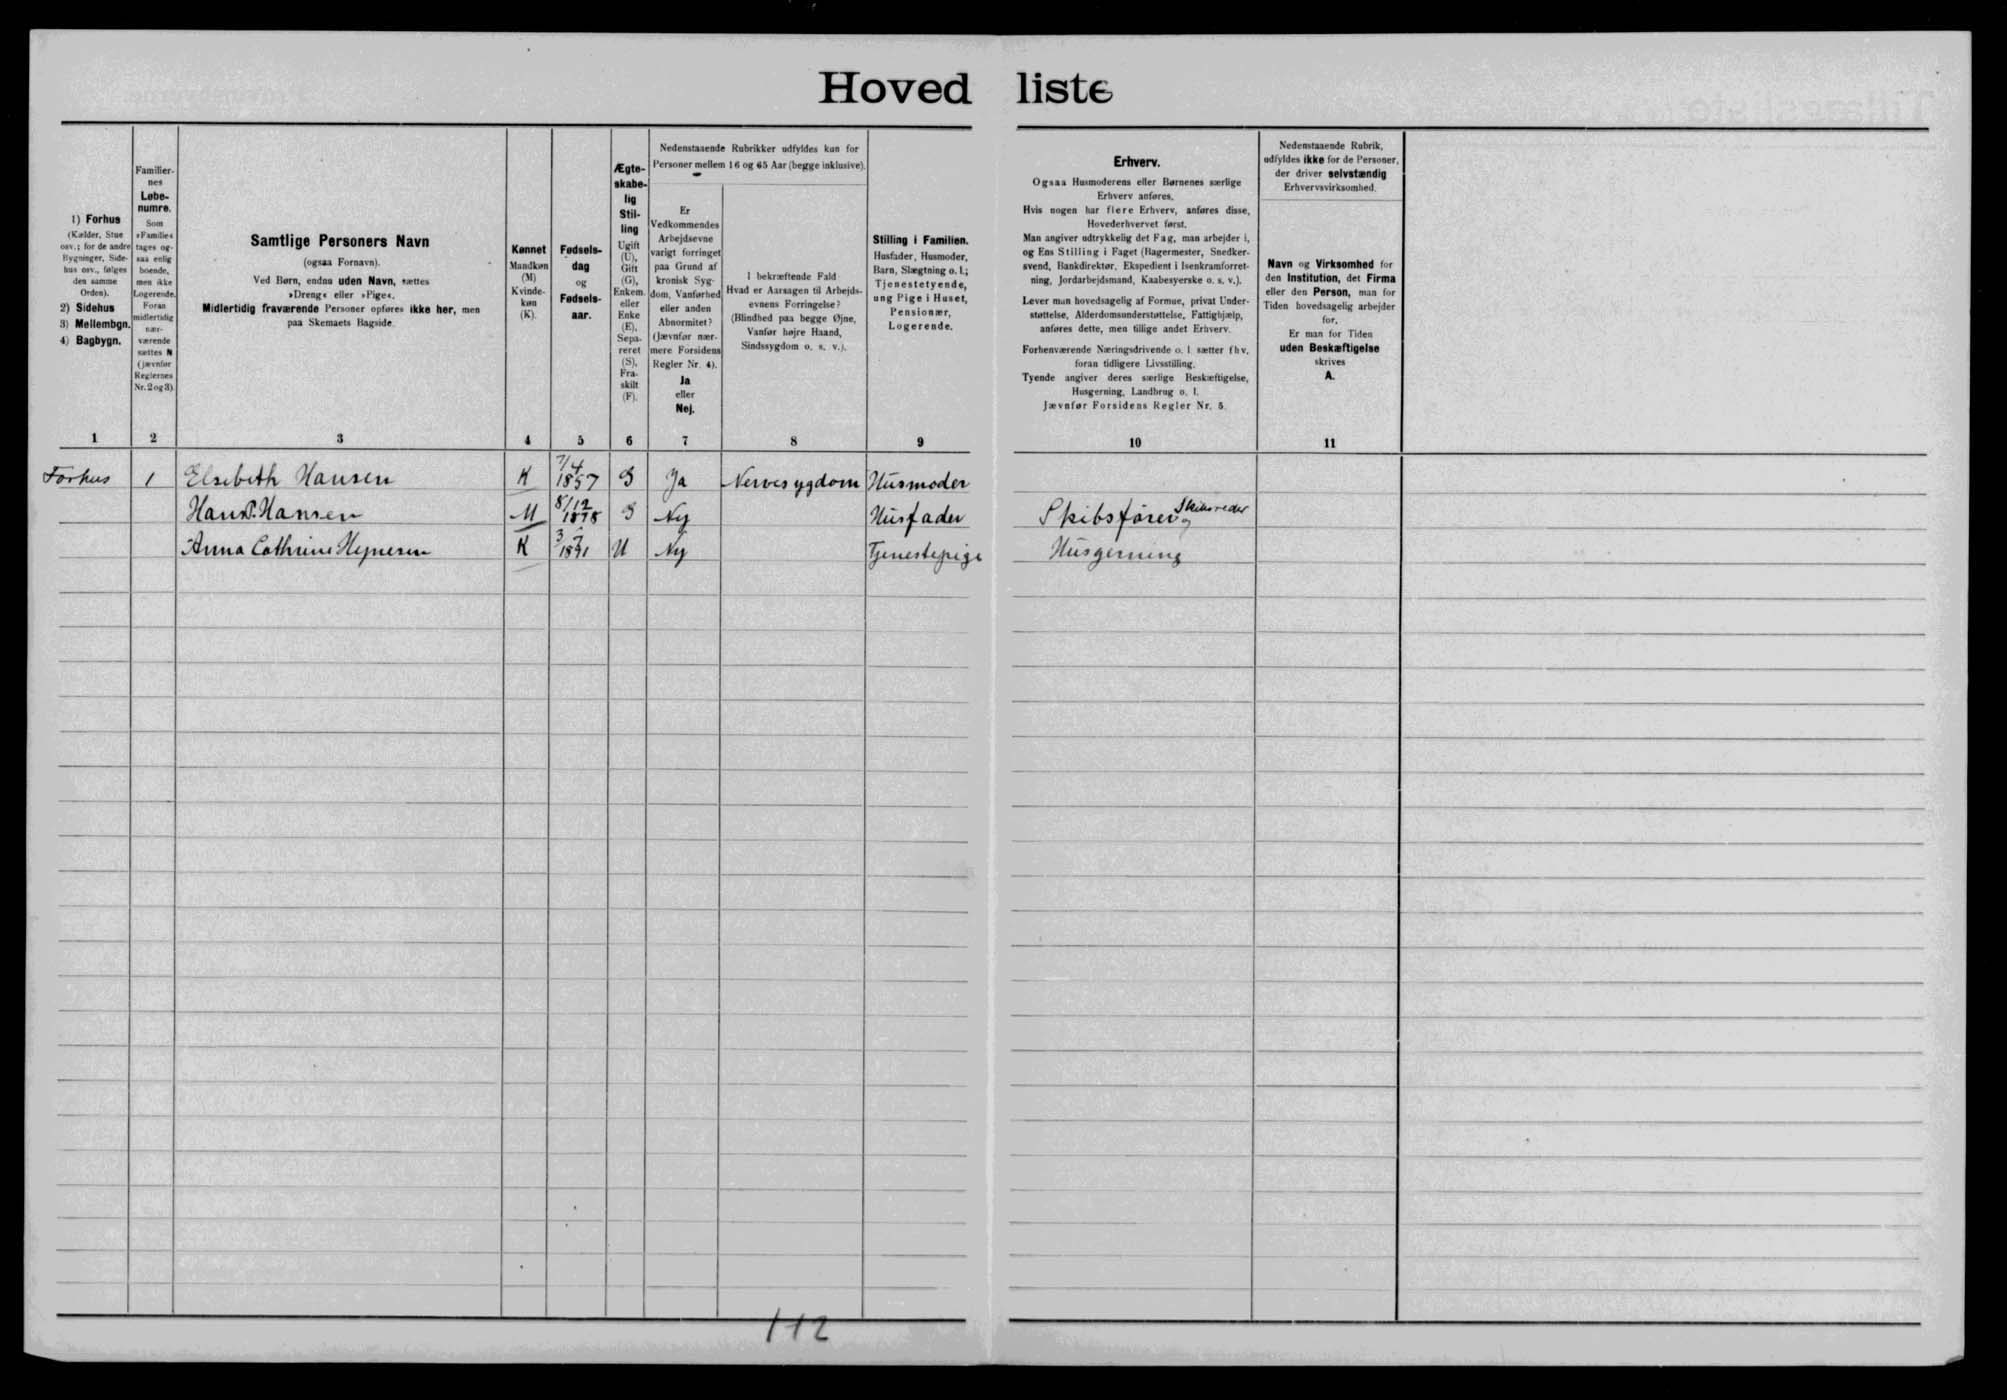 Hovedliste
1) Forhus
(Kælder, Stue
osv.; for de andre
Bygninger, Side-
hus osv., følges
den samme
Orden).
2) Sidehus
3) Mellembgn.
4) Bagbygn.
1
Familier-
nes
Løbe-
numre.
Som
»Familie«
tages og-
saa enlig
boende,
men ikke
Logerende.
Foran
midlertidig
nær-
værende
sættes N
(jævnfør
Reglernes
Nr. 2 og 3)
2
Samtlige Personers Navn
(ogsaa Fornavn).
Ved Børn, endnu uden Navn, sættes
»Dreng« eller »Pige«.
Midlertidig fraværende Personer opføres ikke her, men
paa Skemaets Bagside.
3
Kønnet
Mandkøn
(M)
Kvinde-
køn
(K).
4
Fødsels-
dag
og
Fødsels-
aar.
5
Ægte-
skabe-
lig
Stil-
ling
Ugift
(U),
Gift
(G),
Enkem.
eller
Enke
(E),
Sepa-
reret
(S),
Fra-
skilt
(F).
6
Nedenstaaende Rubrikker udfyldes kun for
Personer mellem 16 og 65 Aar (begge inklusive).
Er
Vedkommendes
Arbejdsevne
varigt forringet
paa Grund af
kronisk Syg-
dom, Vanførhed
eller anden
Abnormitet?
(Jævnfør nær-
mere Forsidens
Regler Nr. 4).
Ja
eller
Nej.
7
I bekræftende Fald
Hvad er Aarsagen til Arbejds-
evnens Forringelse?
(Blindhed paa begge Øjne,
Vanfør højre Haand,
Sindssygdom o. s. v.).
8
Stilling i Familien.
Husfader, Husmoder,
Barn, Slægtning o. l.;
Tjenestetyende,
ung Pige i Huset,
Pensionær,
Logerende.
9
Erhverv.
Ogsaa Husmoderens eller Børnenes særlige
Erhverv anføres.
Hvis nogen har flere Erhverv, anføres disse,
Hovederhvervet først.
Man angiver udtrykkelig det Fag, man arbejder i,
og Ens Stilling i Faget (Bagermester, Snedker-
svend, Bankdirektør, Ekspedient i Isenkramforret-
ning, Jordarbejdsmand, Kaabesyerske o. s. v.).
Lever man hovedsagelig af Formue, privat Under-
støttelse, Alderdomsunderstøttelse, Fattighjælp,
anføres dette, men tillige andet Erhverv.
Forhenværende Næringsdrivende o. l. sætter fhv.
foran tidligere Livsstilling.
Tyende angiver deres særlige Beskæftigelse,
Husgerning, Landbrug o. l.
Jævnfør Forsidens Regler Nr. 5.
10
Nedenstaaende Rubrik,
udfyldes ikke for de Personer,
der driver selvstændig
Erhvervsvirksomhed.
Navn og Virksomhed for
den Institution, det Firma
eller den Person, man for
Tiden hovedsagelig arbejder
for.
Er man for Tiden
uden Beskæftigelse
skrives
A.
11
Forhus 1 Elsebeth Hansen K 7/4 1857 G Ja Nervesygdom Husmoder
Hans P. Hansen M 8/12 1878 G Nej Husfader Skibsfører og Skibsreder
Anna Cathrine K 1891 U Nej Tjenestepige Husgerning
112